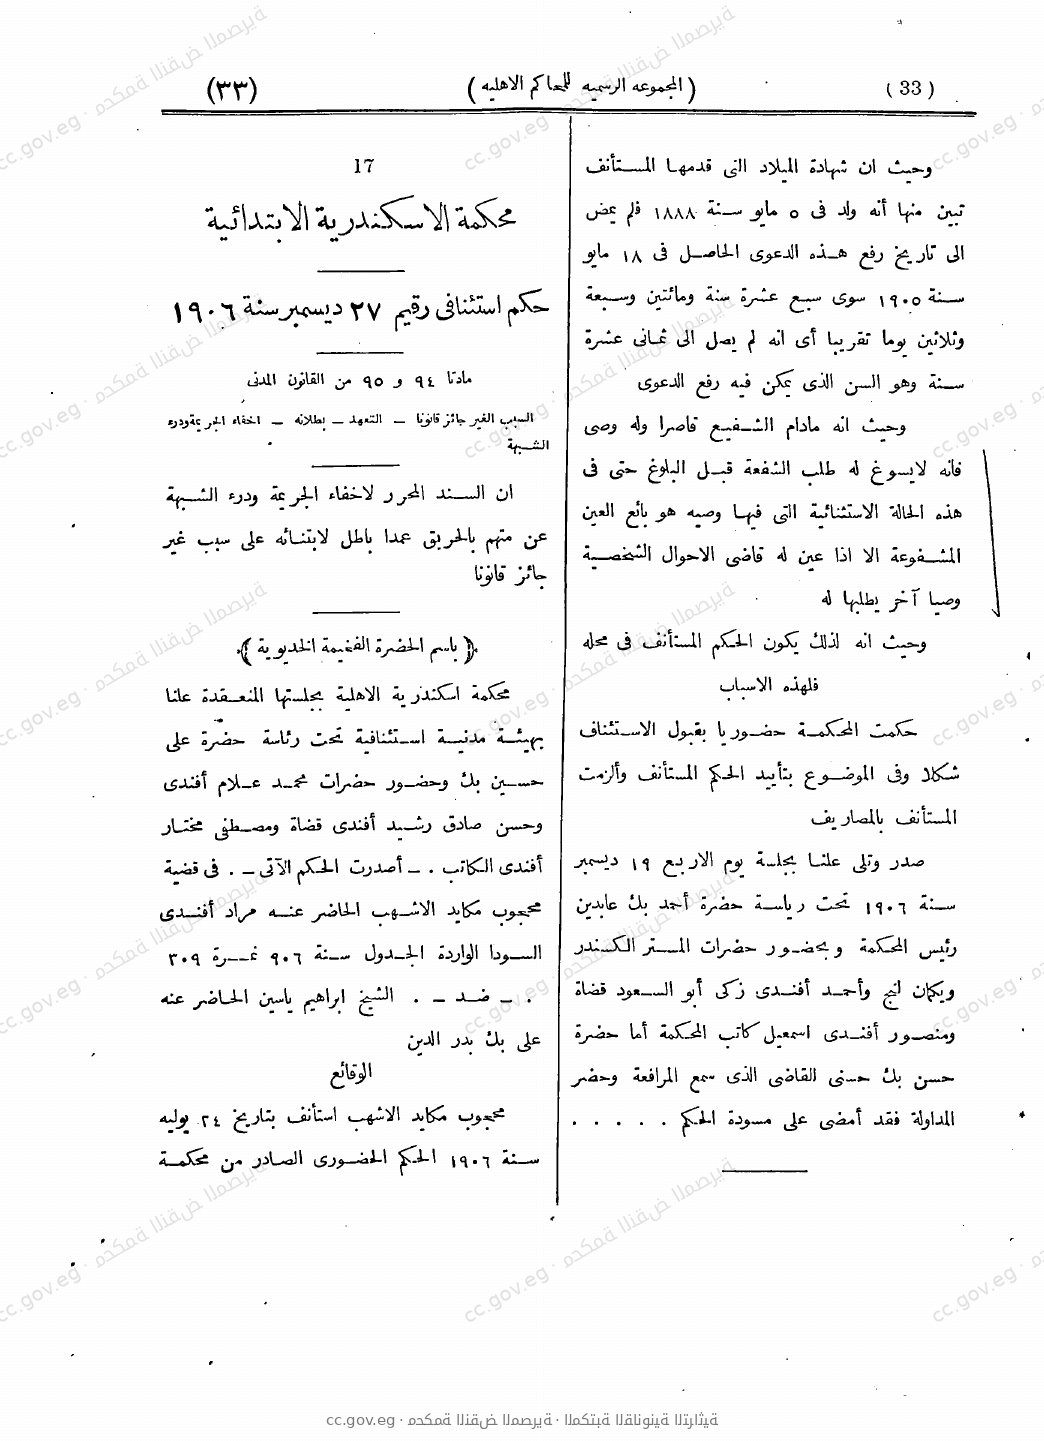 ( 33 )
( المجموعه الرسميه للمحاكم الاهليه )
(٣٣)
وحيث ان شهادة الميلاد التى قدمها المستأنف
تبين منها أنه ولد فى ٥ مايو سنة ١٨٨٨ فلم يمض
الى تاريخ رفع هذه الدعوى الحاصل فى ١٨ مايو
سنة ١٩٠٥ سوى سبع عشرة سنة ومائتين وسبعة
وثلاثين يوما تقريبا أى انه لم يصل الى ثمانى عشرة
سنة وهو السن الذى يمكن فيه رفع الدعوى
وحيث انه مادام الشفيع قاصرا وله وصى
فانه لايسوغ له طلب الشفعة قبل البلوغ حتى فى
هذه الحالة الاستثنائية التى فيها وصيه هو بائع العين
المشفوعة الا اذا عين له قاضى الاحوال الشخصية
وصيا آخر يطلبها له
وحيث انه لذلك يكون الحكم المستأنف فى محله
فلهذه الاسباب
حكمت المحكمة حضوريا بقبول الاستئناف
شكلا وفى الموضوع بتأييد الحكم المستأنف وألزمت
المستأنف بالمصاريف
صدر وتلى علنا بجلسة يوم الاربع ١٩ ديسمبر
سنة ١٩٠٦ تحت رياسة حضرة أحمد بك عابدين
رئيس المحكمة وبحضور حضرات المستر الكسندر
ويكمان لنج وأحمد أفندى زكى أبو السعود قضاة
ومنصور أفندى اسمعيل كاتب المحكمة أما حضرة
حسن بك حسنى القاضى الذى سمع المرافعة وحضر
المداولة فقد أمضى على مسودة الحكم . . . . .
17
محكمة الاسكندرية الابتدائية
حكم استئنافى رقيم ٢٧ ديسمبر سنة ١٩٠٦
مادتا ٩٤ و ٩٥ من القانون المدنى
السبب الغير جائز قانونا – التعهد – بطلانه – اخفاء الجريمة ودرء
الشبهة
ان السند المحرر لاخفاء الجريمة ودرء الشبهة
عن متهم بالحريق عمدا باطل لابتنائه على سبب غير
جائز قانونا
﴿ باسم الحضرة الفخيمة الخديوية ﴾
محكمة اسكندرية الاهلية بجلستها المنعقدة علنا
بهيئة مدنية استئنافية تحت رئاسة حضرة على
حسين بك وحضور حضرات محمد علام أفندى
وحسن صادق رشيد أفندى قضاة ومصطفى مختار
أفندى الكاتب . – أصدرت الحكم الآتى – . فى قضية
محجوب مكايد الاشهب الحاضر عنه مراد أفندى
السودا الواردة الجدول سنة ٩٠٦ نمرة ٣٠٩
. – ضد – . الشيخ ابراهيم ياسين الحاضر عنه
على بك بدر الدين
الوقائع
محجوب مكايد الاشهب استأنف بتاريخ ٢٤ يوليه
سنة ١٩٠٦ الحكم الحضورى الصادر من محكمة
cc.gov.eg · محكمة النقض المصرية · المكتبة القانونية التراثية